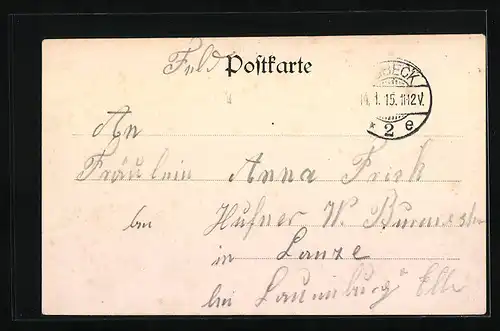 Feld Postkarte
BECK
1. 15. 11-12V.
* 2 e
An
Fräulein Anna Frick
bei Hufner W.
in Lanze
bei Lauenburg a Elbe